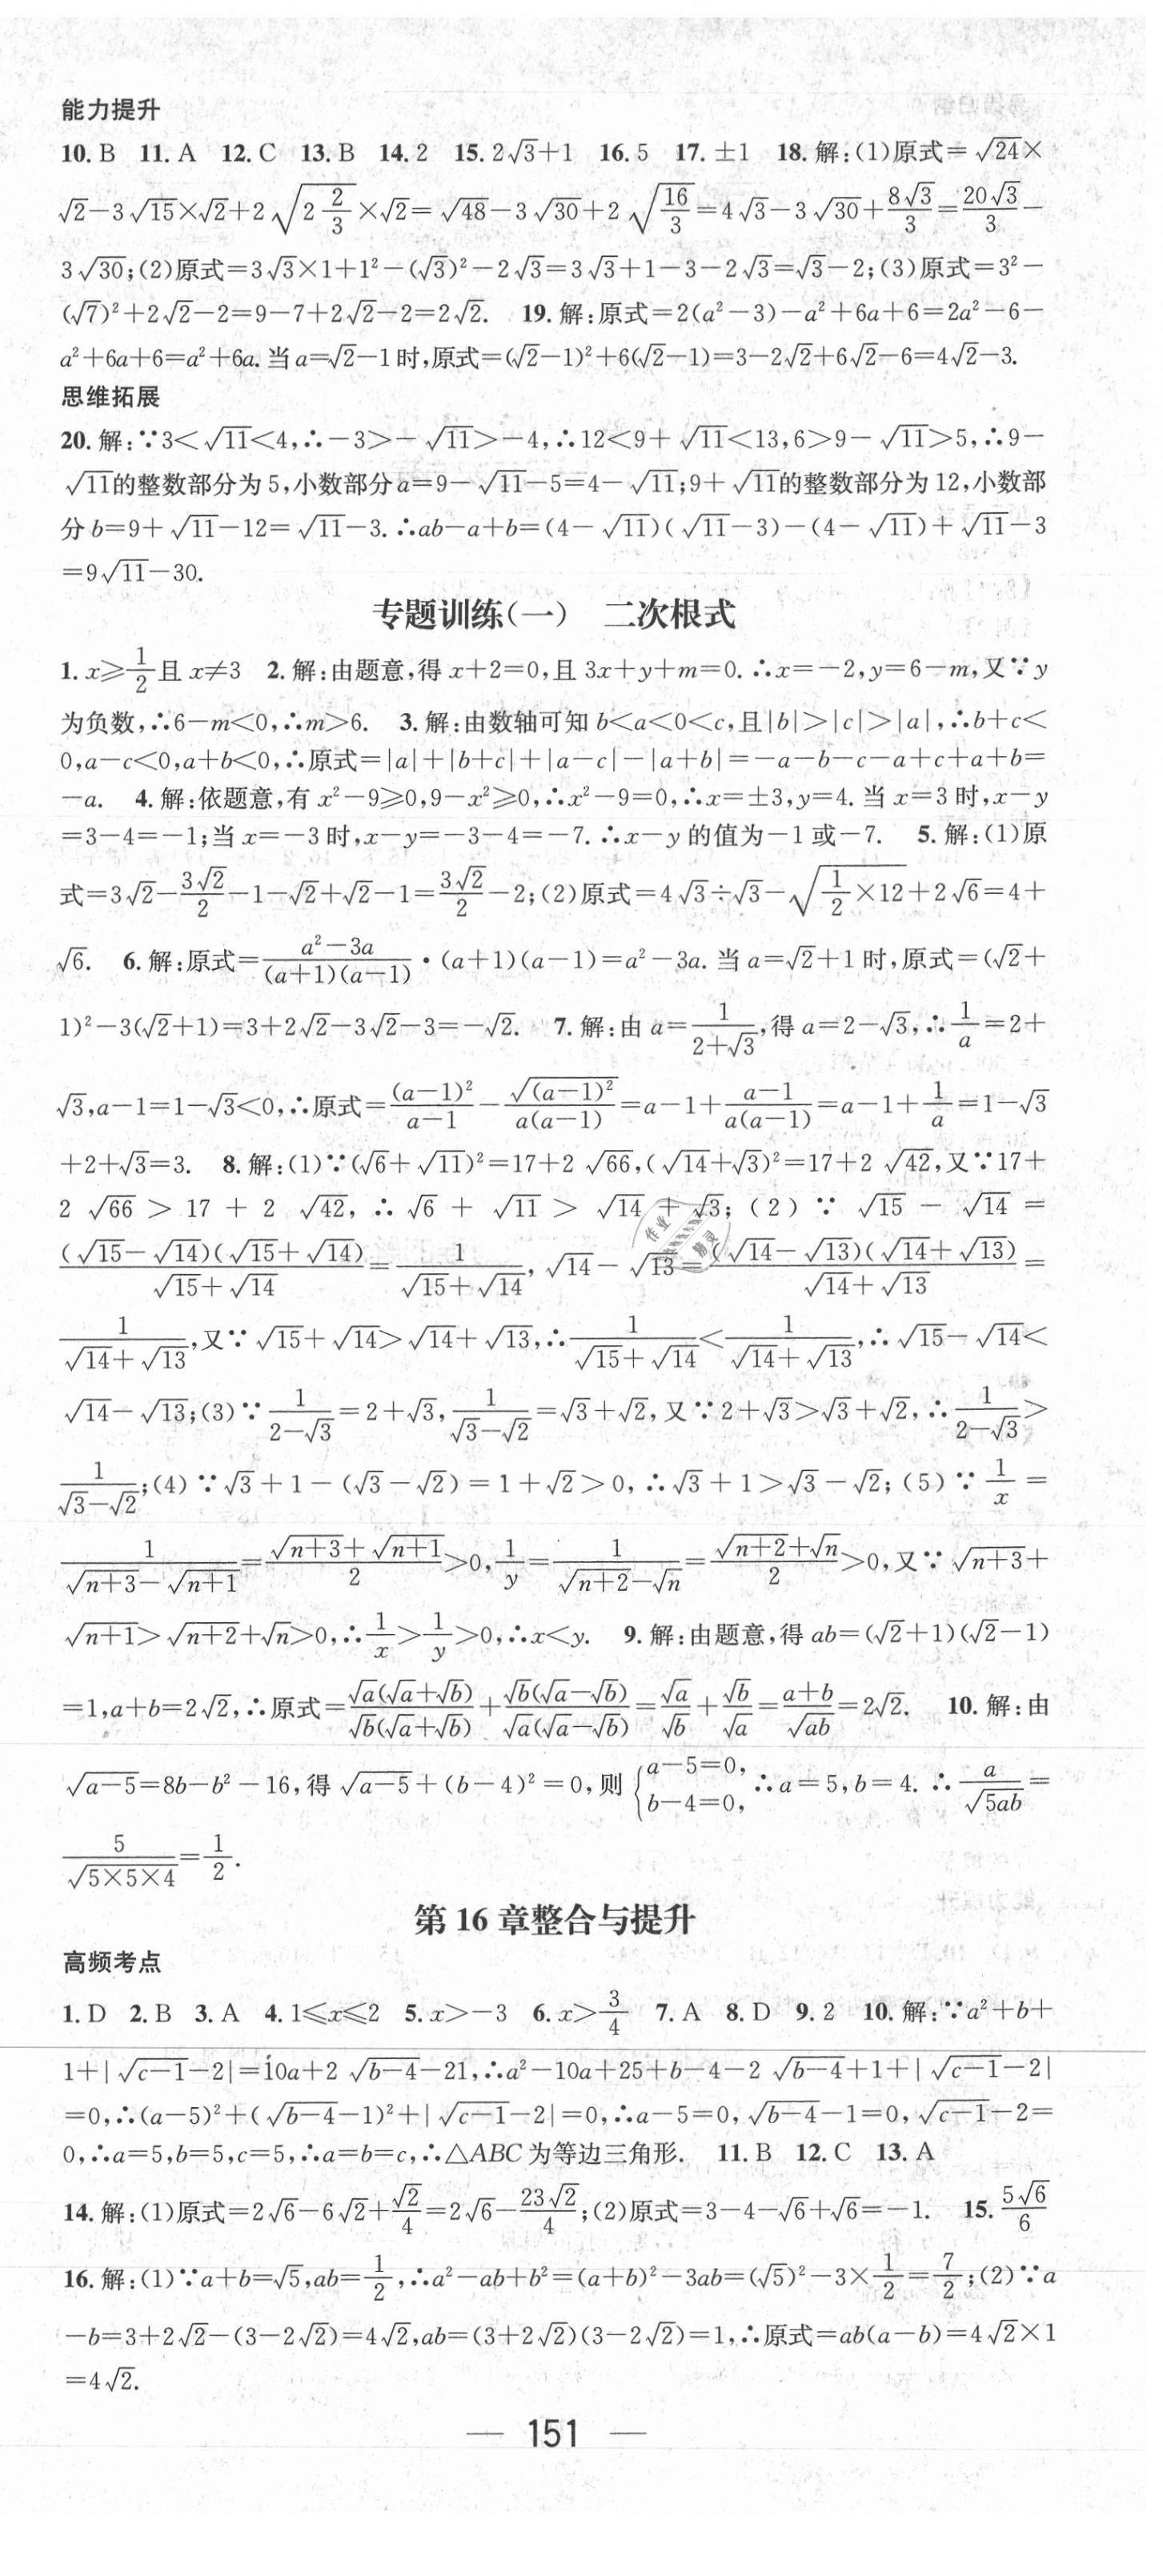 能力提升
10. B 11. A 12. C 13. B 14. 2 15. 2√3+1 16. 5 17. ±1 18. 解:(1)原式=√24×
√2-3√15×√2+2√(2 2/3)×√2=√48-3√30+2√(16/3)=4√3-3√30+8√3/3=20√3/3-
3√30;(2)原式=3√3×1+1²-(√3)²-2√3=3√3+1-3-2√3=√3-2;(3)原式=3²-
(√7)²+2√2-2=9-7+2√2-2=2√2. 19. 解:原式=2(a²-3)-a²+6a+6=2a²-6-
a²+6a+6=a²+6a. 当a=√2-1时,原式=(√2-1)²+6(√2-1)=3-2√2+6√2-6=4√2-3.
思维拓展
20. 解:∵3<√11<4,∴-3>-√11>-4,∴12<9+√11<13,6>9-√11>5,∴9-
√11的整数部分为5,小数部分a=9-√11-5=4-√11;9+√11的整数部分为12,小数部
分b=9+√11-12=√11-3. ∴ab-a+b=(4-√11)(√11-3)-(4-√11)+√11-3
=9√11-30.
专题训练(一) 二次根式
1. x⩾1/2且x≠3 2. 解:由题意,得x+2=0,且3x+y+m=0. ∴x=-2,y=6-m,又∵y
为负数,∴6-m<0,∴m>6. 3. 解:由数轴可知b<a<0<c,且|b|>|c|>|a|,∴b+c<
0,a-c<0,a+b<0,∴原式=|a|+|b+c|+|a-c|-|a+b|=-a-b-c-a+c+a+b=
-a. 4. 解:依题意,有x²-9⩾0,9-x²⩾0,∴x²-9=0,∴x=±3,y=4. 当x=3时,x-y
=3-4=-1;当x=-3时,x-y=-3-4=-7. ∴x-y的值为-1或-7. 5. 解:(1)原
式=3√2-3√2/2-1-√2+√2-1=3√2/2-2;(2)原式=4√3÷√3-√(1/2×12)+2√6=4+
√6. 6. 解:原式=(a²-3a)/((a+1)(a-1))·(a+1)(a-1)=a²-3a. 当a=√2+1时,原式=(√2+
1)²-3(√2+1)=3+2√2-3√2-3=-√2. 7. 解:由a=1/(2+√3),得a=2-√3,∴1/a=2+
√3,a-1=1-√3<0,∴原式=(a-1)²/(a-1)-√((a-1)²)/(a(a-1))=a-1+(a-1)/(a(a-1))=a-1+1/a=1-√3
+2+√3=3. 8. 解:(1)∵(√6+√11)²=17+2√66,(√14+√3)²=17+2√42,又∵17+
2√66>17+2√42,∴√6+√11>√14+√3;(2)∵√15-√14=
(√15-√14)(√15+√14)/(√15+√14)=1/(√15+√14),√14-√13=(√14-√13)(√14+√13)/(√14+√13)=
1/(√14+√13),又∵√15+√14>√14+√13,∴1/(√15+√14)<1/(√14+√13),∴√15-√14<
√14-√13;(3)∵1/(2-√3)=2+√3,1/(√3-√2)=√3+√2,又∵2+√3>√3+√2,∴1/(2-√3)>
1/(√3-√2);(4)∵√3+1-(√3-√2)=1+√2>0,∴√3+1>√3-√2;(5)∵1/x=
1/(√(n+3)-√(n+1))=(√(n+3)+√(n+1))/2>0,1/y=1/(√(n+2)-√n)=(√(n+2)+√n)/2>0,又∵√(n+3)+
√(n+1)>√(n+2)+√n>0,∴1/x>1/y>0,∴x<y. 9. 解:由题意,得ab=(√2+1)(√2-1)
=1,a+b=2√2,∴原式=√a(√a+√b)/(√b(√a+√b))+√b(√a-√b)/(√a(√a-√b))=√a/√b+√b/√a=(a+b)/√(ab)=2√2. 10. 解:由
√(a-5)=8b-b²-16,得√(a-5)+(b-4)²=0,则{a-5=0, b-4=0, ∴a=5,b=4. ∴a/√(5ab)=
5/√(5×5×4)=1/2.
第16章整合与提升
高频考点
1. D 2. B 3. A 4. 1⩽x⩽2 5. x>-3 6. x>3/4 7. A 8. D 9. 2 10. 解:∵a²+b+
1+|√(c-1)-2|=10a+2√(b-4)-21,∴a²-10a+25+b-4-2√(b-4)+1+|√(c-1)-2|
=0,∴(a-5)²+(√(b-4)-1)²+|√(c-1)-2|=0,∴a-5=0,√(b-4)-1=0,√(c-1)-2=
0,∴a=5,b=5,c=5,∴a=b=c,∴△ABC为等边三角形. 11. B 12. C 13. A
14. 解:(1)原式=2√6-6√2+√2/4=2√6-23√2/4;(2)原式=3-4-√6+√6=-1. 15. 5√6/6
16. 解:(1)∵a+b=√5,ab=1/2,∴a²-ab+b²=(a+b)²-3ab=(√5)²-3×1/2=7/2;(2)∵a
-b=3+2√2-(3-2√2)=4√2,ab=(3+2√2)(3-2√2)=1,∴原式=ab(a-b)=4√2×1
=4√2.
— 151 —